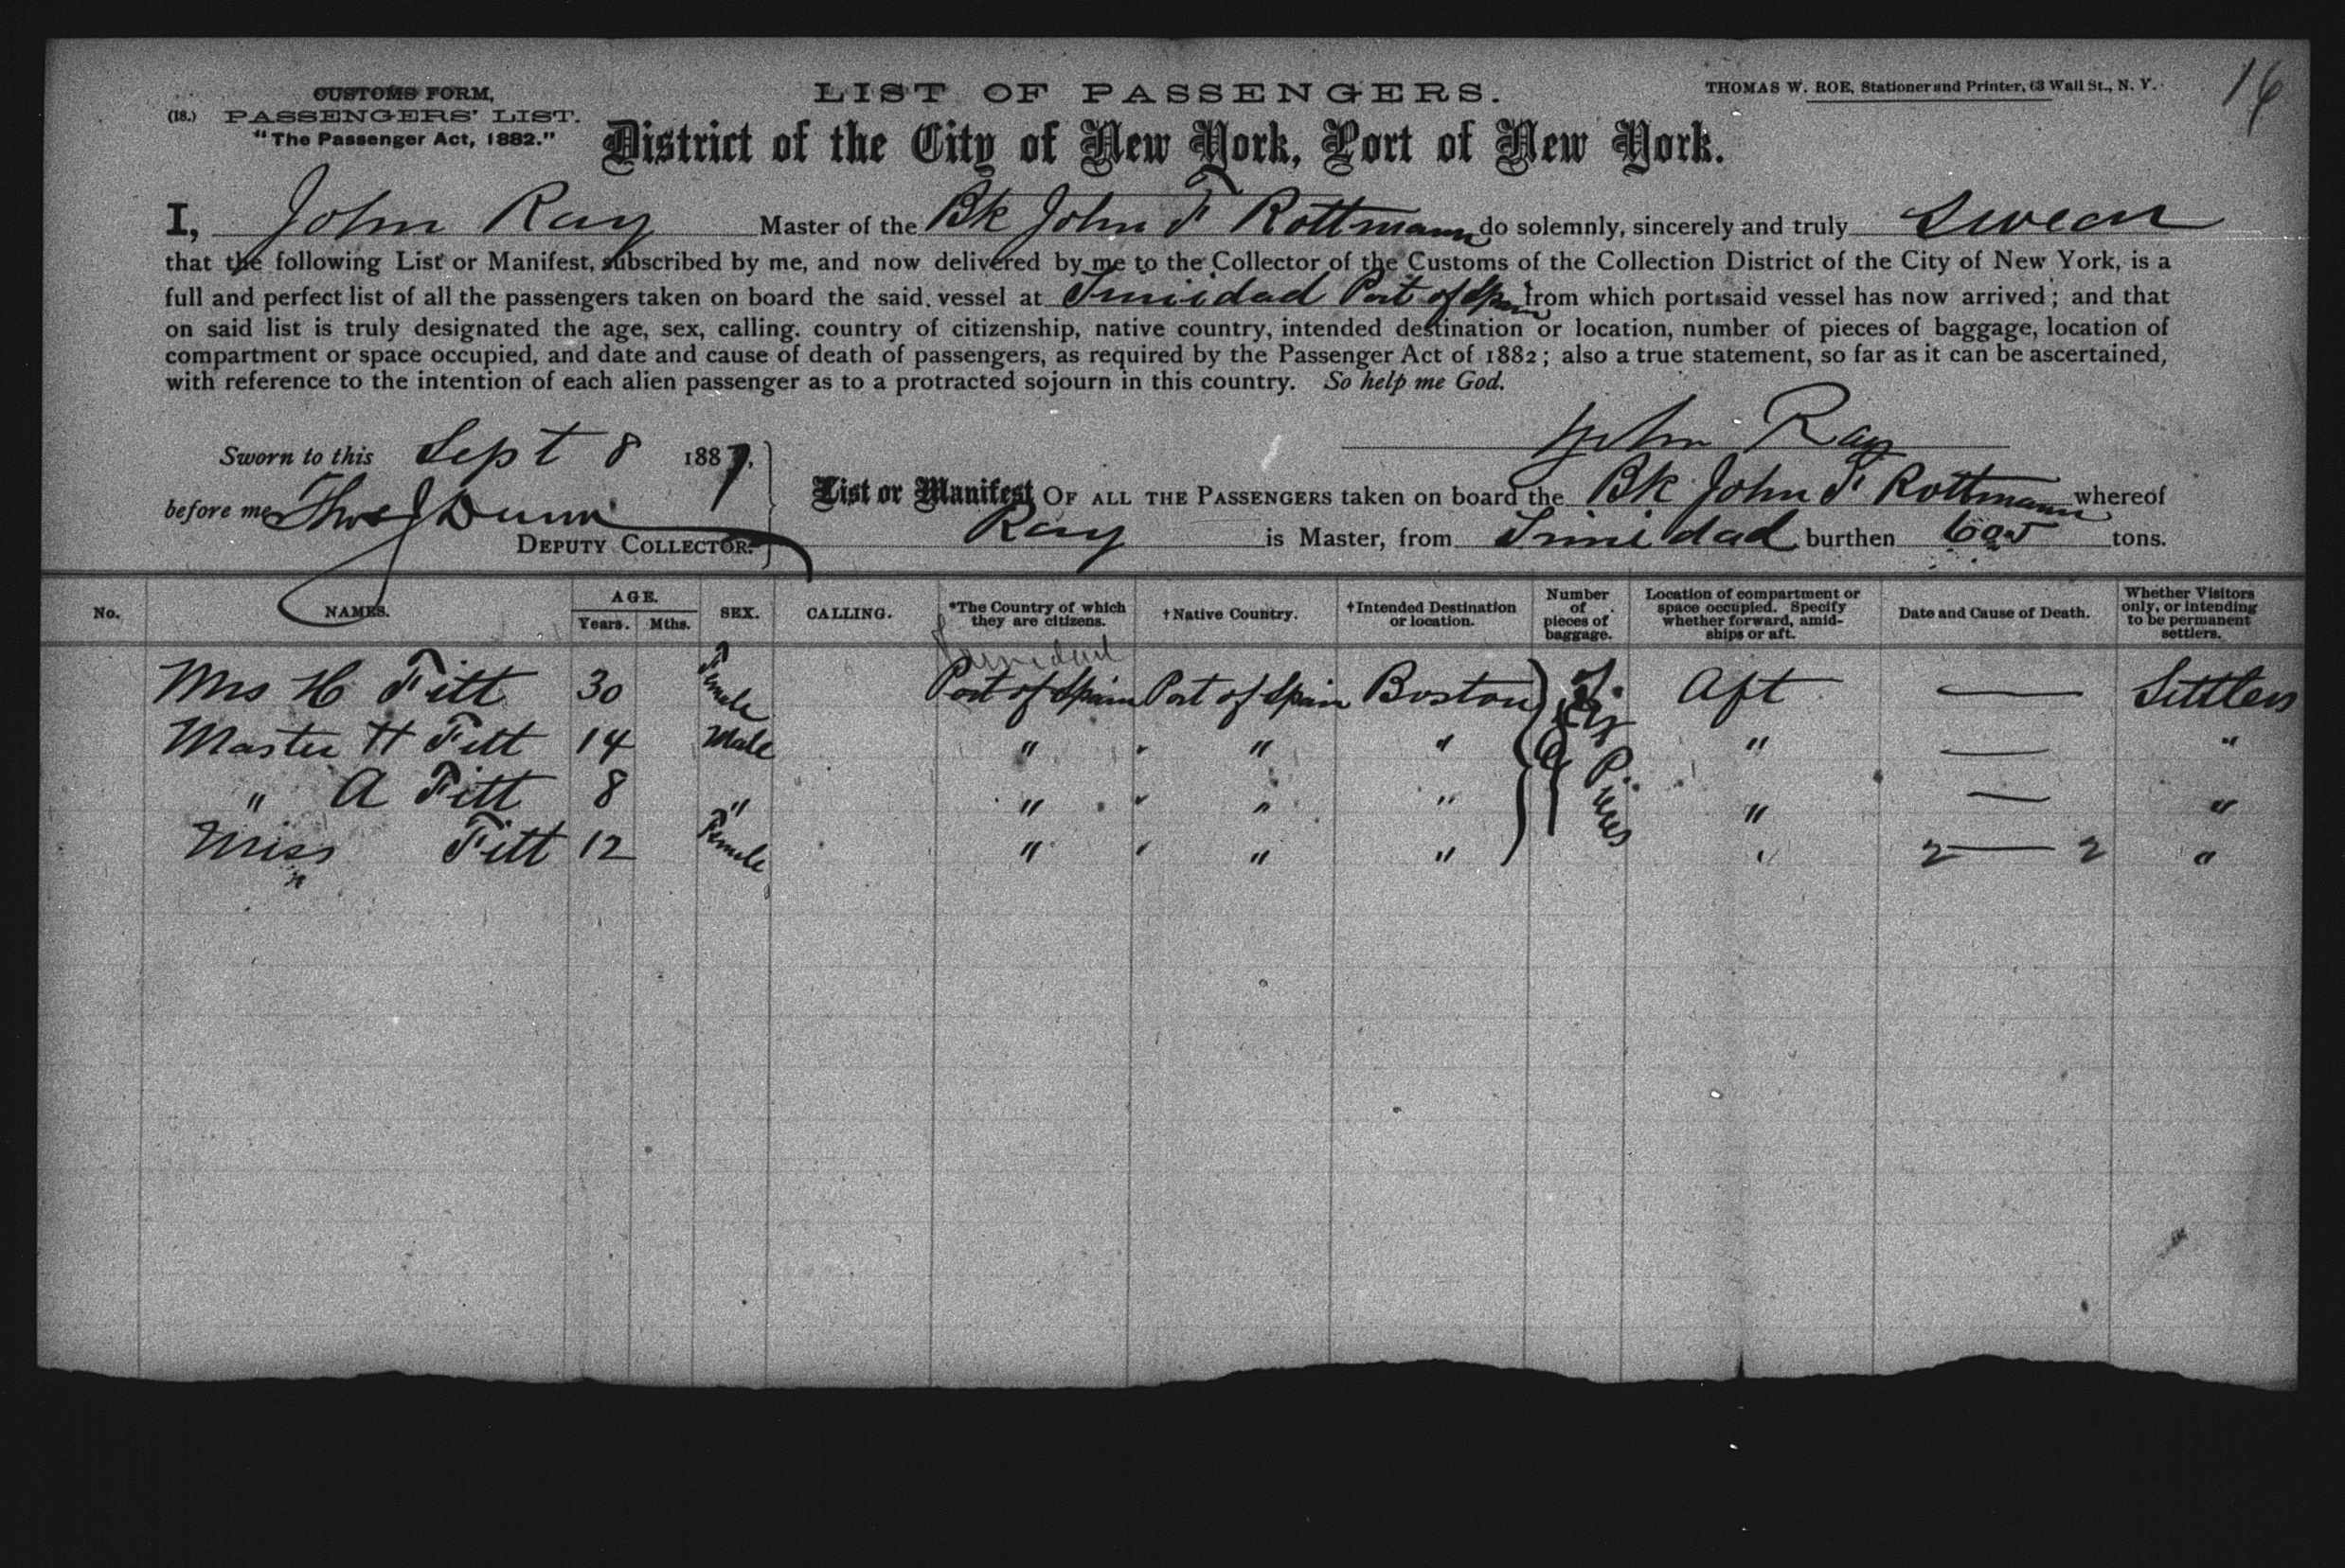 CUSTOMS FORM,
(18.) PASSENGERS' LIST.
"The Passenger Act, 1882."
LIST OF PASSENGERS.
THOMAS W. ROE, Stationer and Printer, 63 Wall St., N. Y.
16
District of the City of New York, Port of New York.
I, John Ray Master of the Bk John F Rottmann do solemnly, sincerely and truly Swear
that the following List or Manifest, subscribed by me, and now delivered by me to the Collector of the Customs of the Collection District of the City of New York, is a
full and perfect list of all the passengers taken on board the said vessel at Trinidad Port of Spain from which port said vessel has now arrived; and that
on said list is truly designated the age, sex, calling. country of citizenship, native country, intended destination or location, number of pieces of baggage, location of
compartment or space occupied, and date and cause of death of passengers, as required by the Passenger Act of 1882; also a true statement, so far as it can be ascertained,
with reference to the intention of each alien passenger as to a protracted sojourn in this country. So help me God.
John Ray
Sworn to this Sept 8 1887,
before me Thos J Dunn
DEPUTY COLLECTOR.
List or Manifest OF ALL THE PASSENGERS taken on board the Bk John F Rottmann whereof
Ray is Master, from Trinidad burthen 605 tons.
No. NAMES. AGE. Years. Mths. SEX. CALLING. *The Country of which they are citizens. †Native Country. †Intended Destination or location. Number of pieces of baggage. Location of compartment or space occupied. Specify whether forward, amidships or aft. Date and Cause of Death. Whether Visitors only, or intending to be permanent settlers.
Trinidad
Mrs H Fitt 30 Female Port of Spain Port of Spain Boston Aft — Settlers
Master H Fitt 14 Male " " " " — "
" A Fitt 8 " " " " " — "
Miss Fitt 12 Female " " " " 2 — 2 "
Pieces